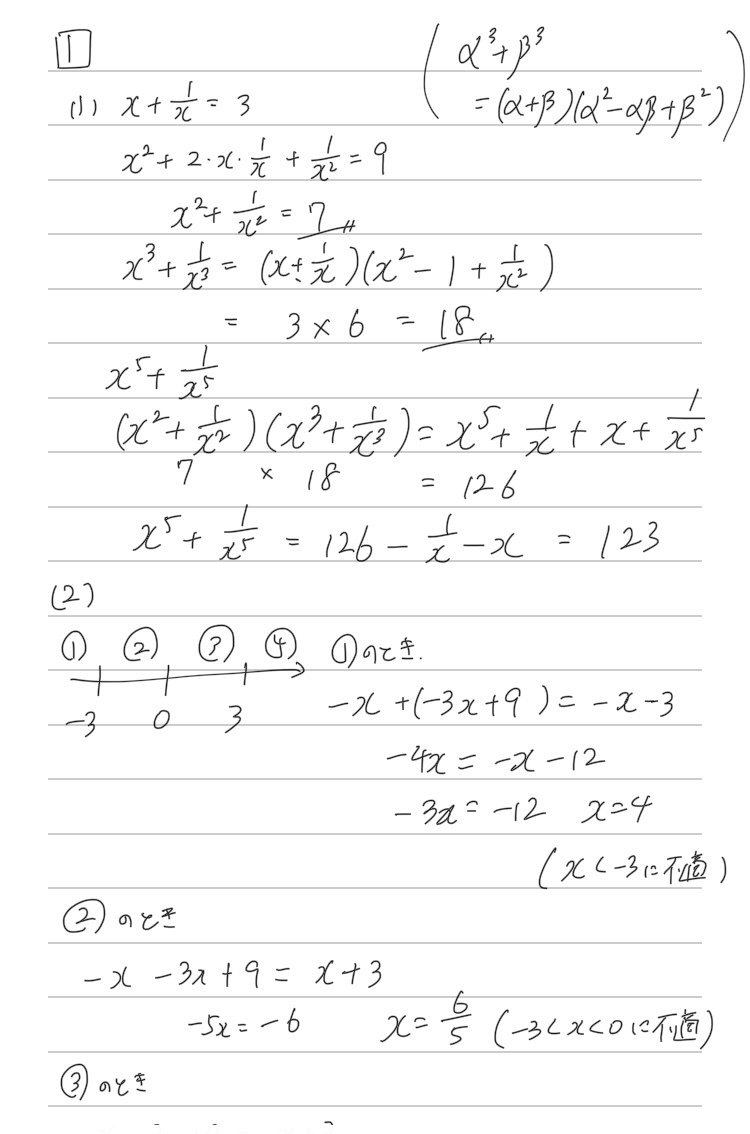 1
(α³+β³
=(α+β)(α²-αβ+β²))
(1) x+1/x=3
x²+2・x・1/x+1/x²=9
x²+1/x²=7
x³+1/x³=(x+1/x)(x²-1+1/x²)
=3×6=18
x⁵+1/x⁵
(x²+1/x²)(x³+1/x³)=x⁵+1/x+x+1/x⁵
7×18=126
x⁵+1/x⁵=126-1/x-x=123
(2)
① ② ③ ④
-3 0 3
①のとき.
-x+(-3x+9)=-x-3
-4x=-x-12
-3x=-12 x=4
(x<-3に不適)
②のとき
-x-3x+9=x+3
-5x=-6 x=6/5 (-3<x<0に不適)
③のとき